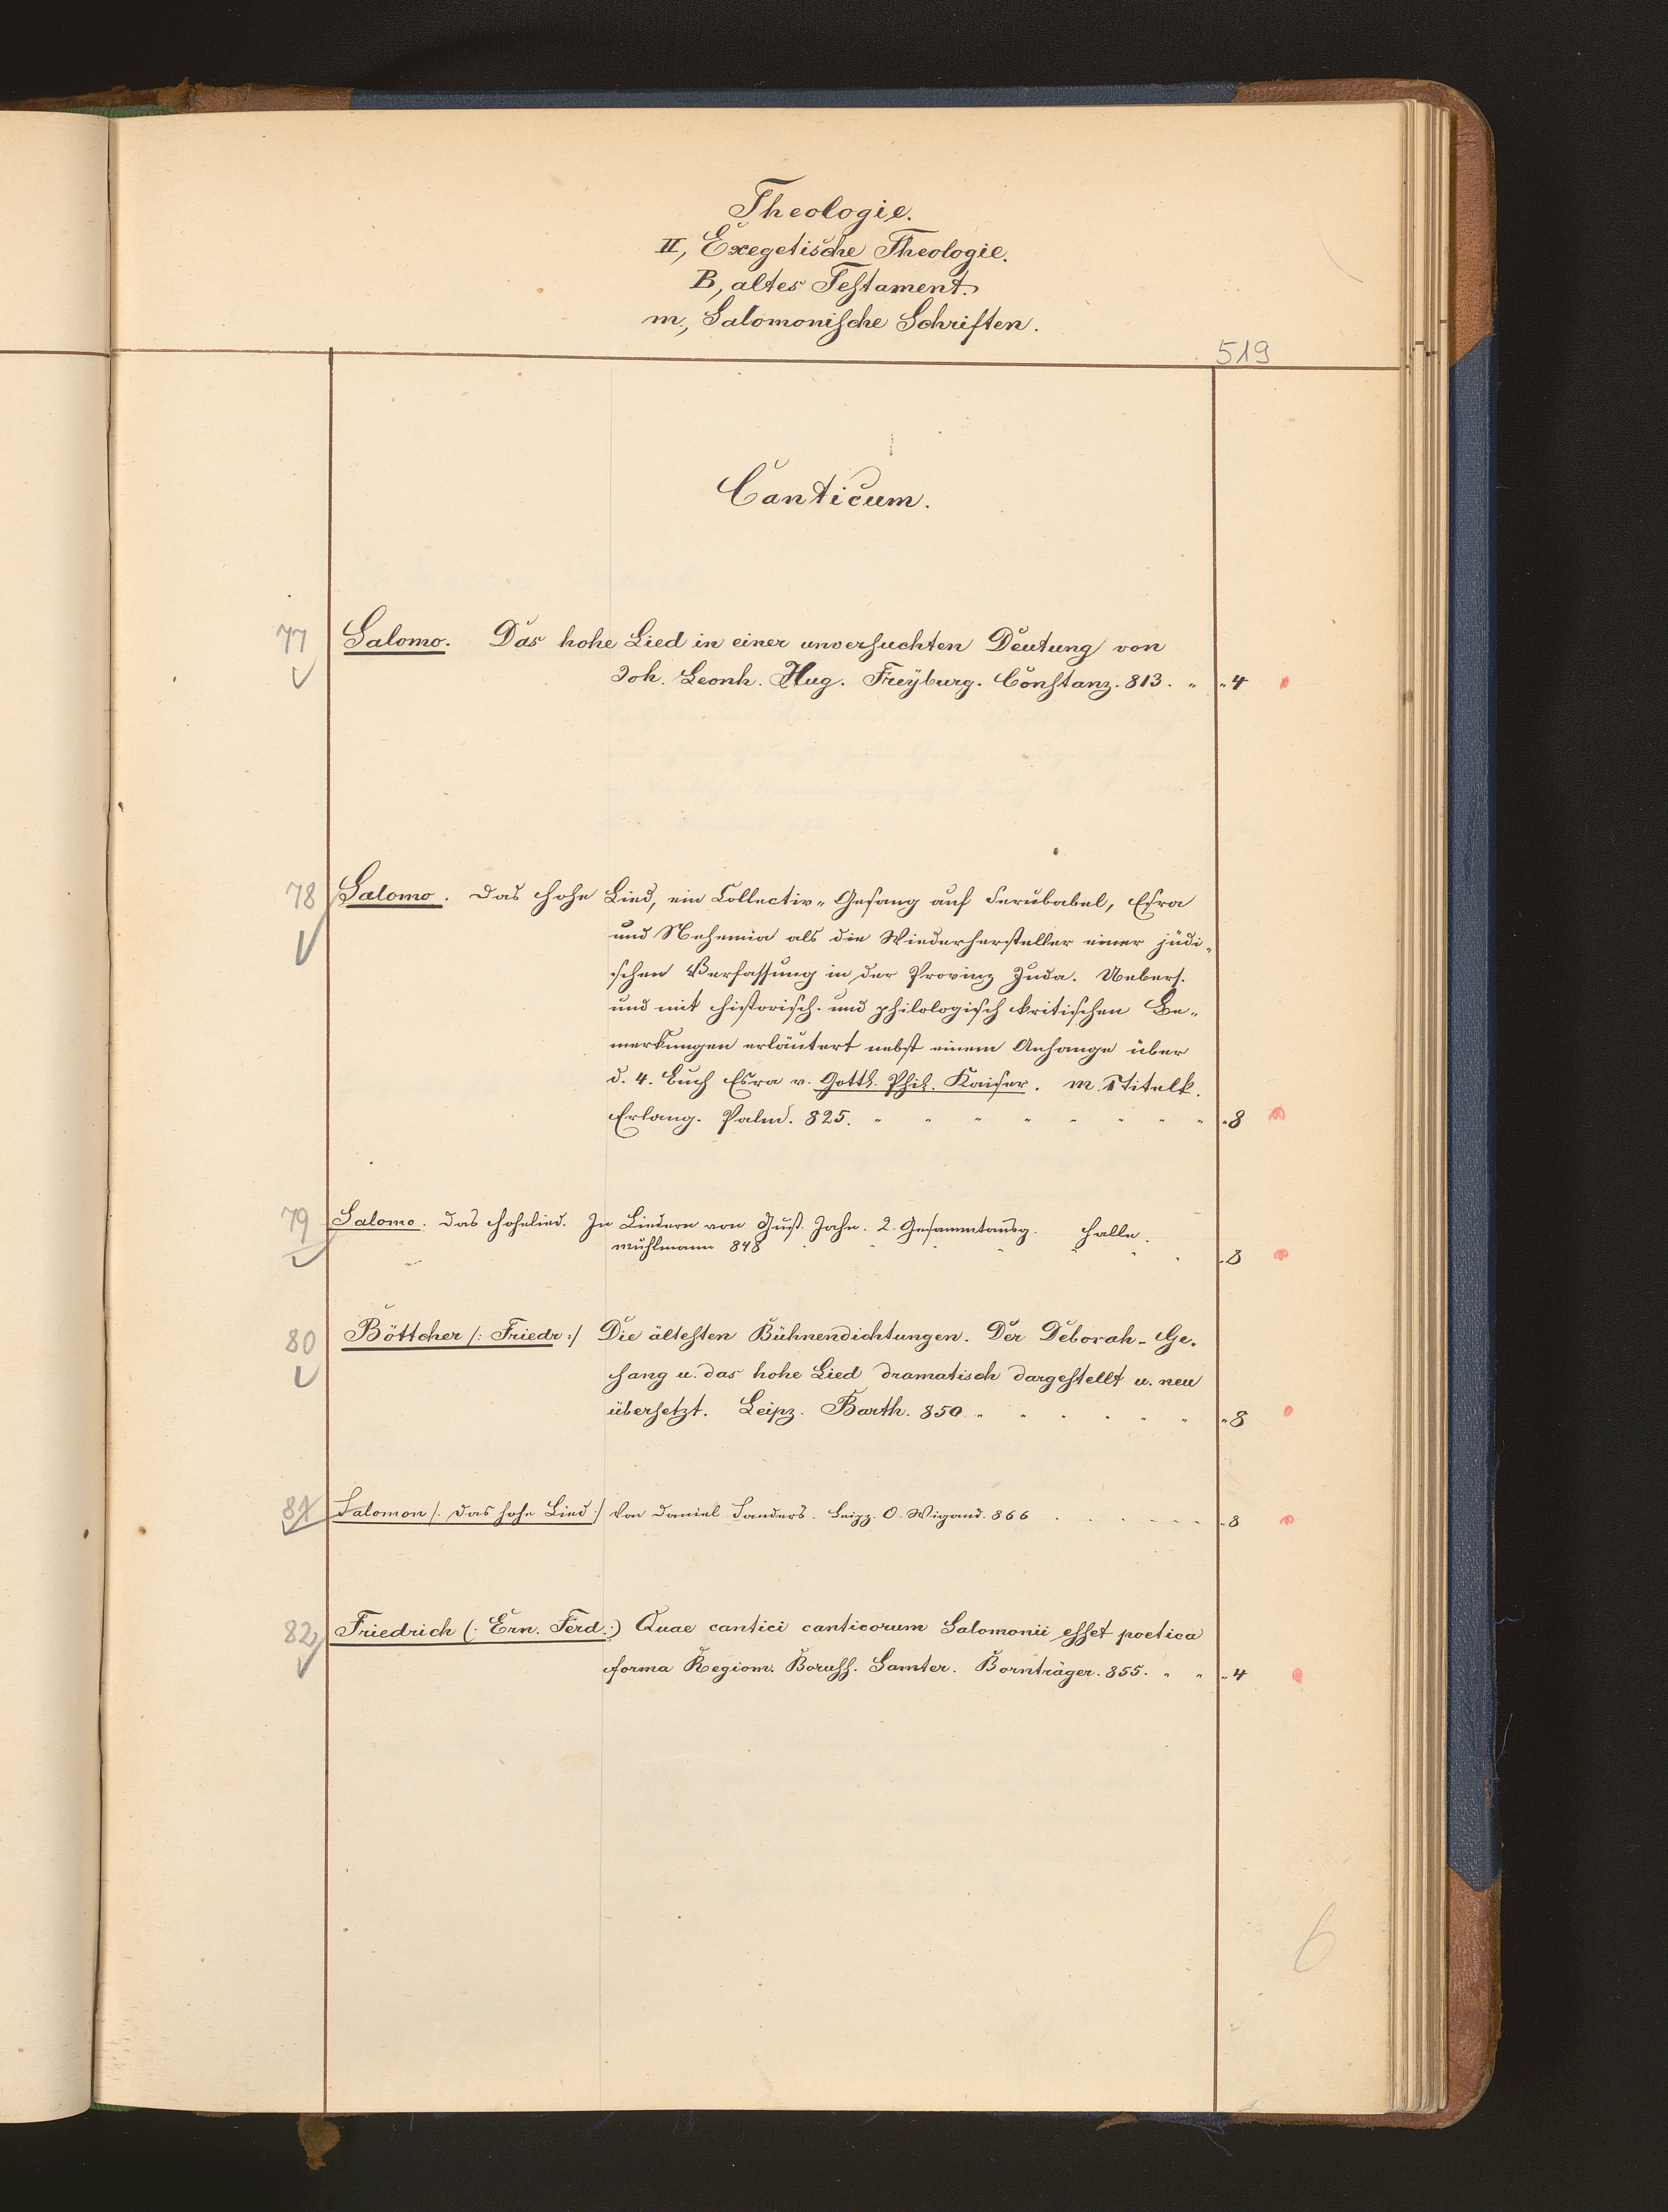 Theologie.
II, Exegetische Theologie.
B, altes Testament.
m., Salomonische Schriften.
519
Canticum.
77 Salomo. Das hohe Lied in einer unversuchten Deutung von
Joh. Leonh. Hug. Freÿburg. Constanz. 813. " "4
78 Salomo. Das hohe Lied, ein Collectiv-Gesang auf Serubabel, Esra
und Nehemia als die Wiederhersteller einer jüdi-
schen Verfassung in der Provinz Juda. Uebers.
und mit historisch- und philologisch kritischen Be-
merkungen erläutert nebst einem Anhange über
d. 4. Buch Esra v. Gottl. Phil. Kaiser. m. 1 Titelk.
Erlang. Palm. 825. " " " " " " " " "8
79 Salomo. Das Hohelied. In Liedern von Gust. Jahn. 2. Gesammtausg. Halle.
Mühlmann 848 " " " " " " " "8
80 Böttcher /: Friedr :/ Die ältesten Bühnendichtungen. Der Deborah-Ge-
sang u. das hohe Lied dramatisch dargestellt u. neu
übersetzt. Leipz. Barth. 850. " " " " " " "8
81 Salomon /: Das hohe Lied :/ Von Daniel Sanders. Leipz. O. Wigand. 866 . . . . . . . "8
82 Friedrich (: Ern. Ferd.:) Quae cantici canticorum Salomonii esset poetica
forma Regiom. Boruss. Samter. Bornträger. 855. " " "4
6